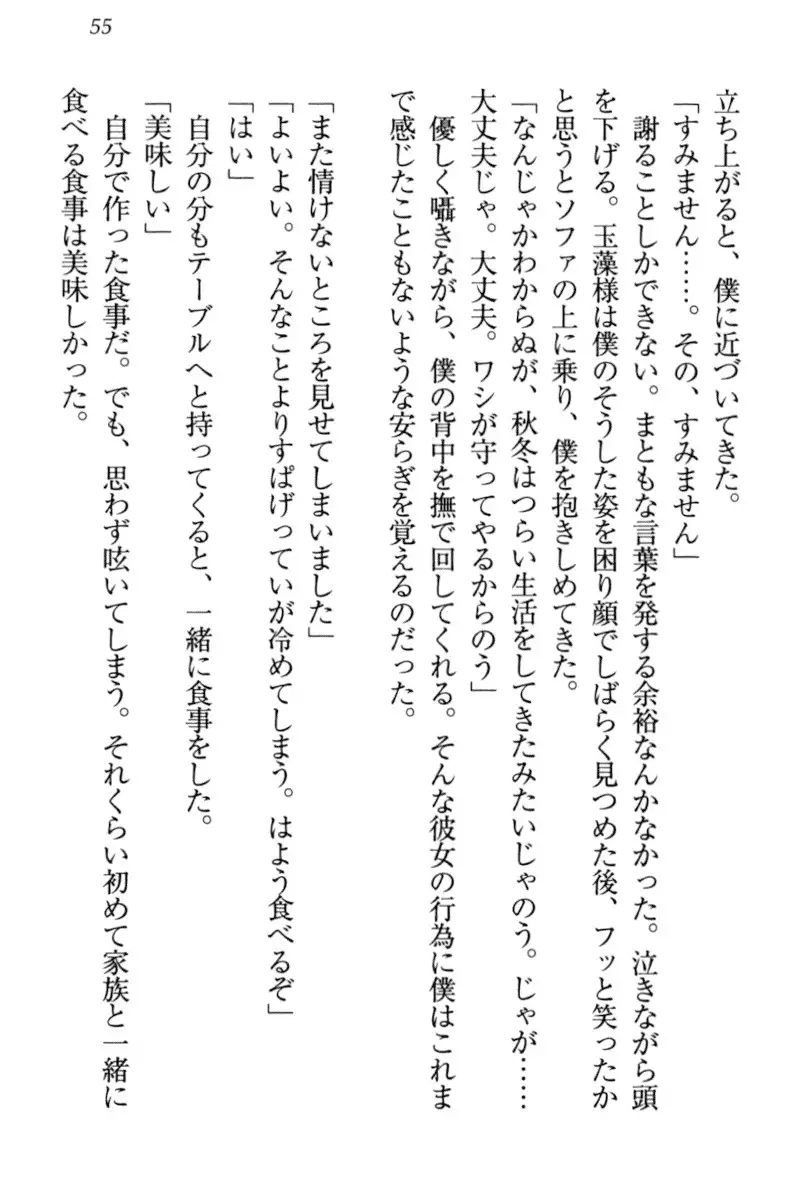 55
立ち上がると、僕に近づいてきた。
「すみません……。その、すみません」
謝ることしかできない。まともな言葉を発する余裕なんかなかった。泣きながら頭
を下げる。玉藻様は僕のそうした姿を困り顔でしばらく見つめた後、フッと笑ったか
と思うとソファの上に乗り、僕を抱きしめてきた。
「なんじゃかわからぬが、秋冬はつらい生活をしてきたみたいじゃのう。じゃが……
大丈夫じゃ。大丈夫。ワシが守ってやるからのう」
優しく囁きながら、僕の背中を撫で回してくれる。そんな彼女の行為に僕はこれま
で感じたこともないような安らぎを覚えるのだった。
「また情けないところを見せてしまいました」
「よいよい。そんなことよりすぱげっていが冷めてしまう。はよう食べるぞ」
「はい」
自分の分もテーブルへと持ってくると、一緒に食事をした。
「美味しい」
自分で作った食事だ。でも、思わず呟いてしまう。それくらい初めて家族と一緒に
食べる食事は美味しかった。